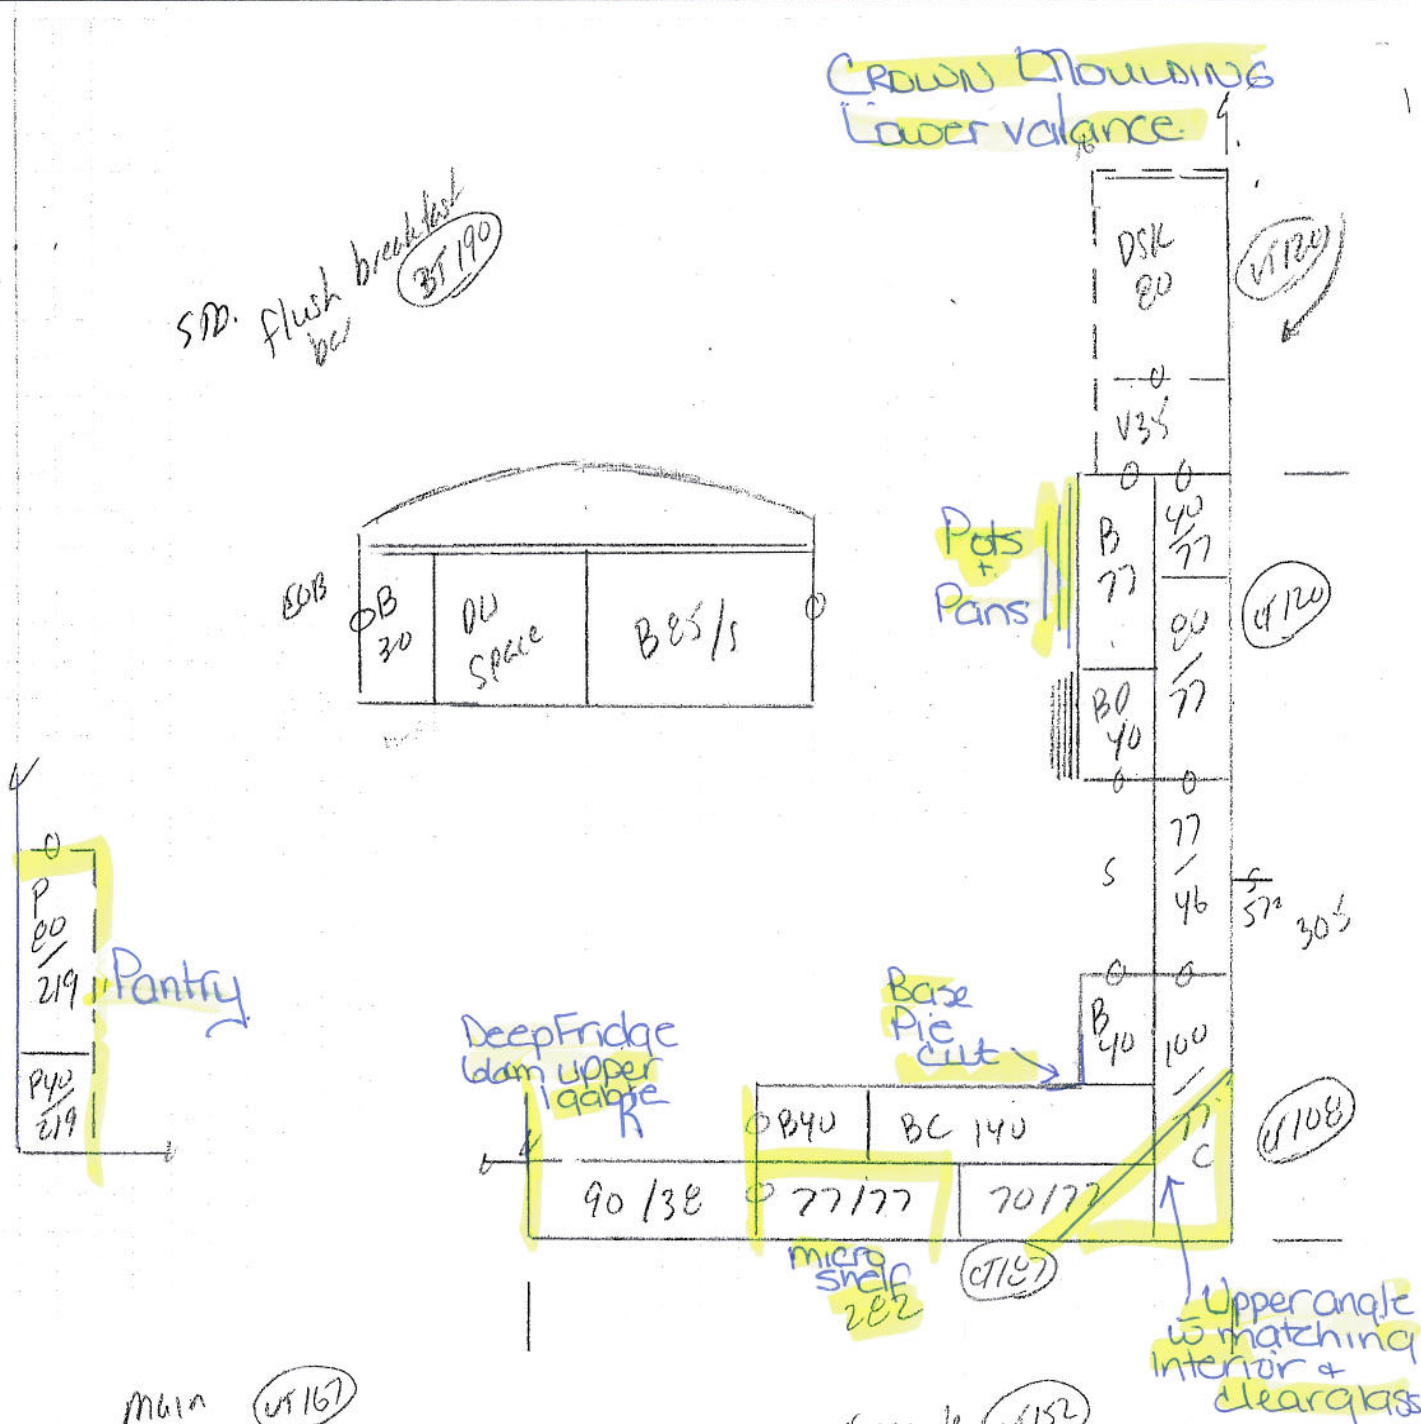 CROWN MOULDING
Lower valance
flush breakfast
bar
BT 190
DSK
80
VT120
V35
Pots
+
Pans
B
77
40/77
80/77
CT120
BD
40
EOB
B
30
DW
Space
B 85/S
77/46
S
305
P
80/219
Pantry
P40/219
Base
Pie
cut
B
40
100/77
C
Deep Fridge
upper
gable
B40
BC 140
CT108
90/38
77/77
70/77
micro
shelf
282
CT187
Upper angle
w matching
Interior &
clear glass
Main
VT167